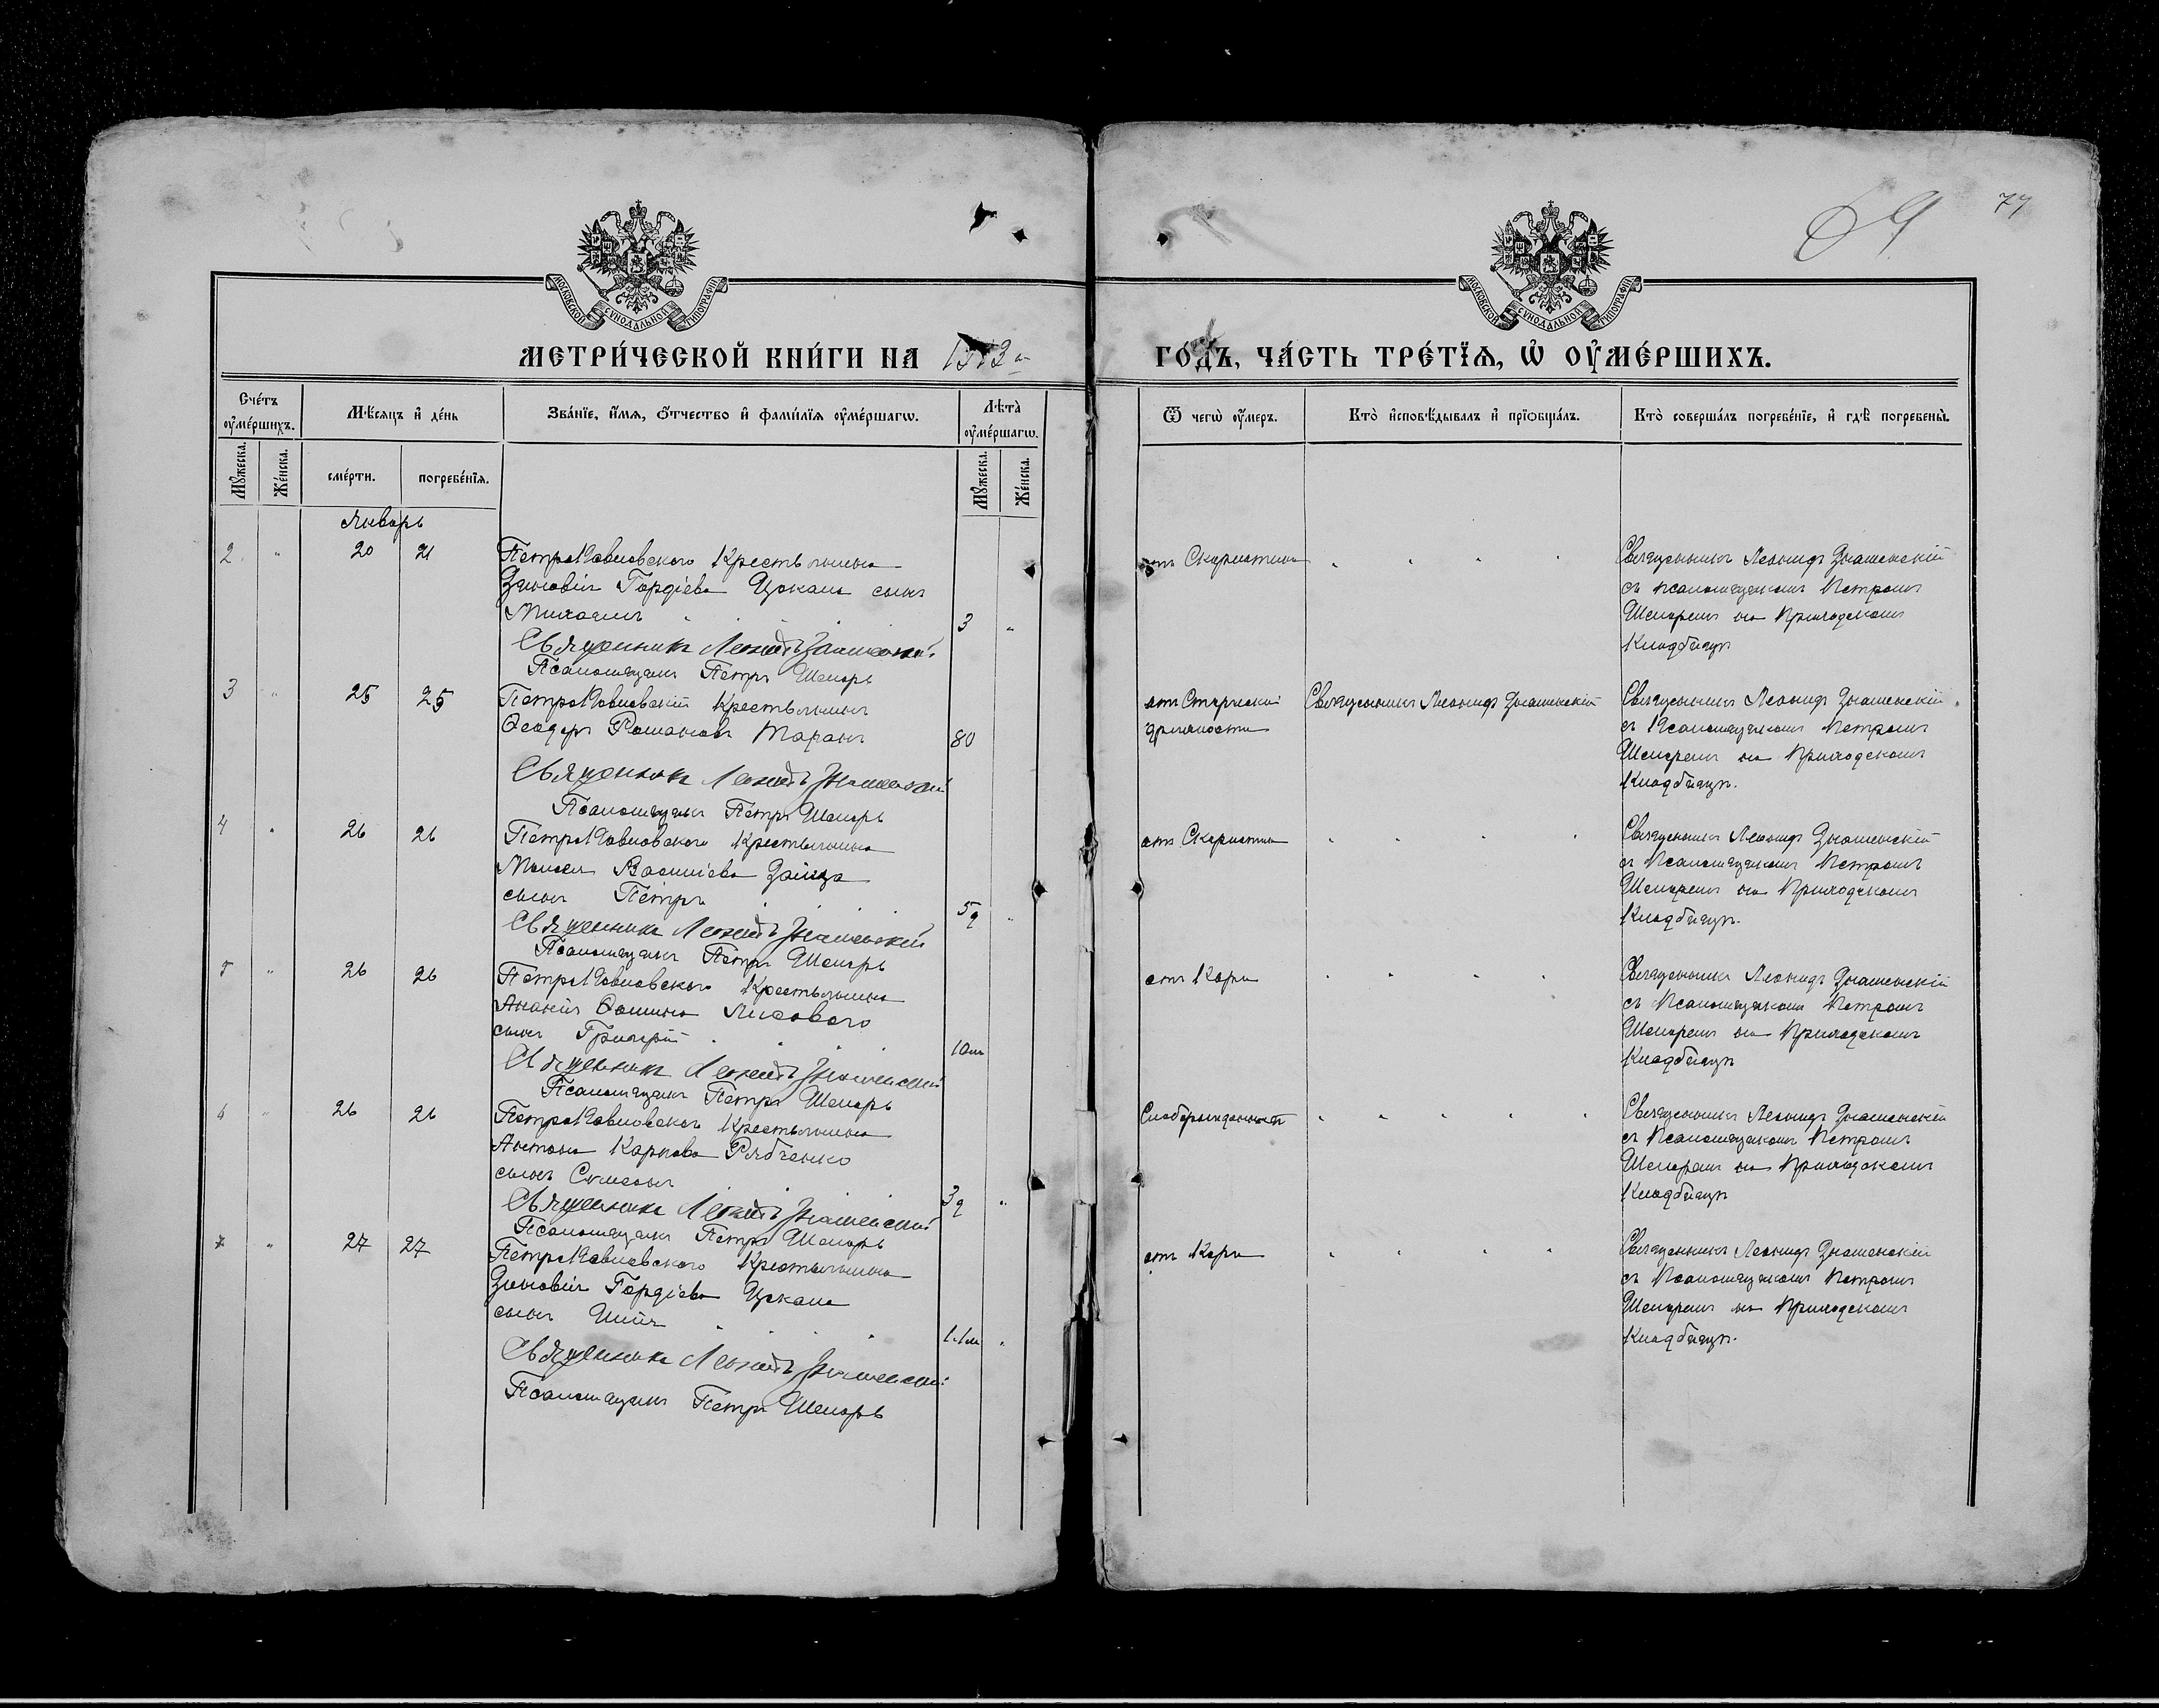 77
МОСКОВСКОЙ СѴНОДАЛЬНОЙ ТИПОГРАФІИ
МОСКОВСКОЙ СѴНОДАЛЬНОЙ ТИПОГРАФІИ
МЕТРИ́ЧЕСКОЙ КНИ́ГИ НА
ГО́ДЪ, ЧА́СТЬ ТРЕ́ТЇѦ, Ѡ҆ ОУ҆МЕ́РШИХЪ.
Сче́тъ оу҆ме́ршихъ.
Мѣ́сяцъ и҆ де́нь
Зва́нїе, и҆́мѧ, ѻ҆́тчество и҆ фами́лїѧ оу҆ме́ршагѡ.
Лѣ̑та̀ оу҆ме́ршагѡ.
Ѿ чегѡ̀ оу҆́меръ.
Кто̀ и҆сповѣ́дывалъ и҆ прїѡбща́лъ.
Кто̀ соверша́лъ погребе́нїе, и҆ гдѣ̀ погребены̀.
Мꙋ́жеска.
Же́нска.
сме́рти.
погребе́нїѧ.
Мꙋ́жеска.
Же́нска.
Январь
2 " 20 21 ПетроПавловскаго Крестьянина
Зиновія Гордіева Цокало сынъ
Михаилъ 3 "
Священникъ Леонидъ Знаменскій
Псаломщикъ Петръ
отъ Скарлатины
Священникъ Леонидъ Знаменскій
съ псаломщикомъ Петромъ
на Приходскомъ
Кладбищѣ
3 " 25 25 ПетроПавловскій Крестьянинъ
Ѳеодоръ Романовъ Таранъ 80
Священникъ Леонидъ Знаменскій
Псаломщикъ Петръ
отъ Старческой
дряхлости
Священникъ Леонидъ Знаменскій
Священникъ Леонидъ Знаменскій
съ Псаломщикомъ Петромъ
на Приходскомъ
Кладбищѣ.
4 " 26 26 ПетроПавловскаго Крестьянина
Моисея Васильева Зайца
сынъ Петръ 5 "
Священникъ Леонидъ Знаменскій
Псаломщикъ Петръ
отъ Скарлатины
Священникъ Леонидъ Знаменскій
съ Псаломщикомъ Петромъ
на Приходскомъ
Кладбищѣ.
5 " 26 26 ПетроПавловскаго Крестьянина
Ананія Ѳомина Лисового
сынъ Григорій 10м
Священникъ Леонидъ Знаменскій
Псаломщикъ Петръ
отъ Кори
Священникъ Леонидъ Знаменскій
съ Псаломщикомъ Петромъ
на Приходскомъ
Кладбищѣ
6 " 26 26 ПетроПавловскаго Крестьянина
Антона Карпова Рябченко
сынъ Симеонъ 3 "
Священникъ Леонидъ Знаменскій
Псаломщикъ Петръ
Священникъ Леонидъ Знаменскій
съ Псаломщикомъ Петромъ
на Приходскомъ
Кладбищѣ
7 " 27 27 ПетроПавловскаго Крестьянина
Зиновія Гордіева Цокало
сынъ 1.1м "
Священникъ Леонидъ Знаменскій
Псаломщикъ Петръ
отъ Кори
Священникъ Леонидъ Знаменскій
съ Псаломщикомъ Петромъ
на Приходскомъ
Кладбищѣ.